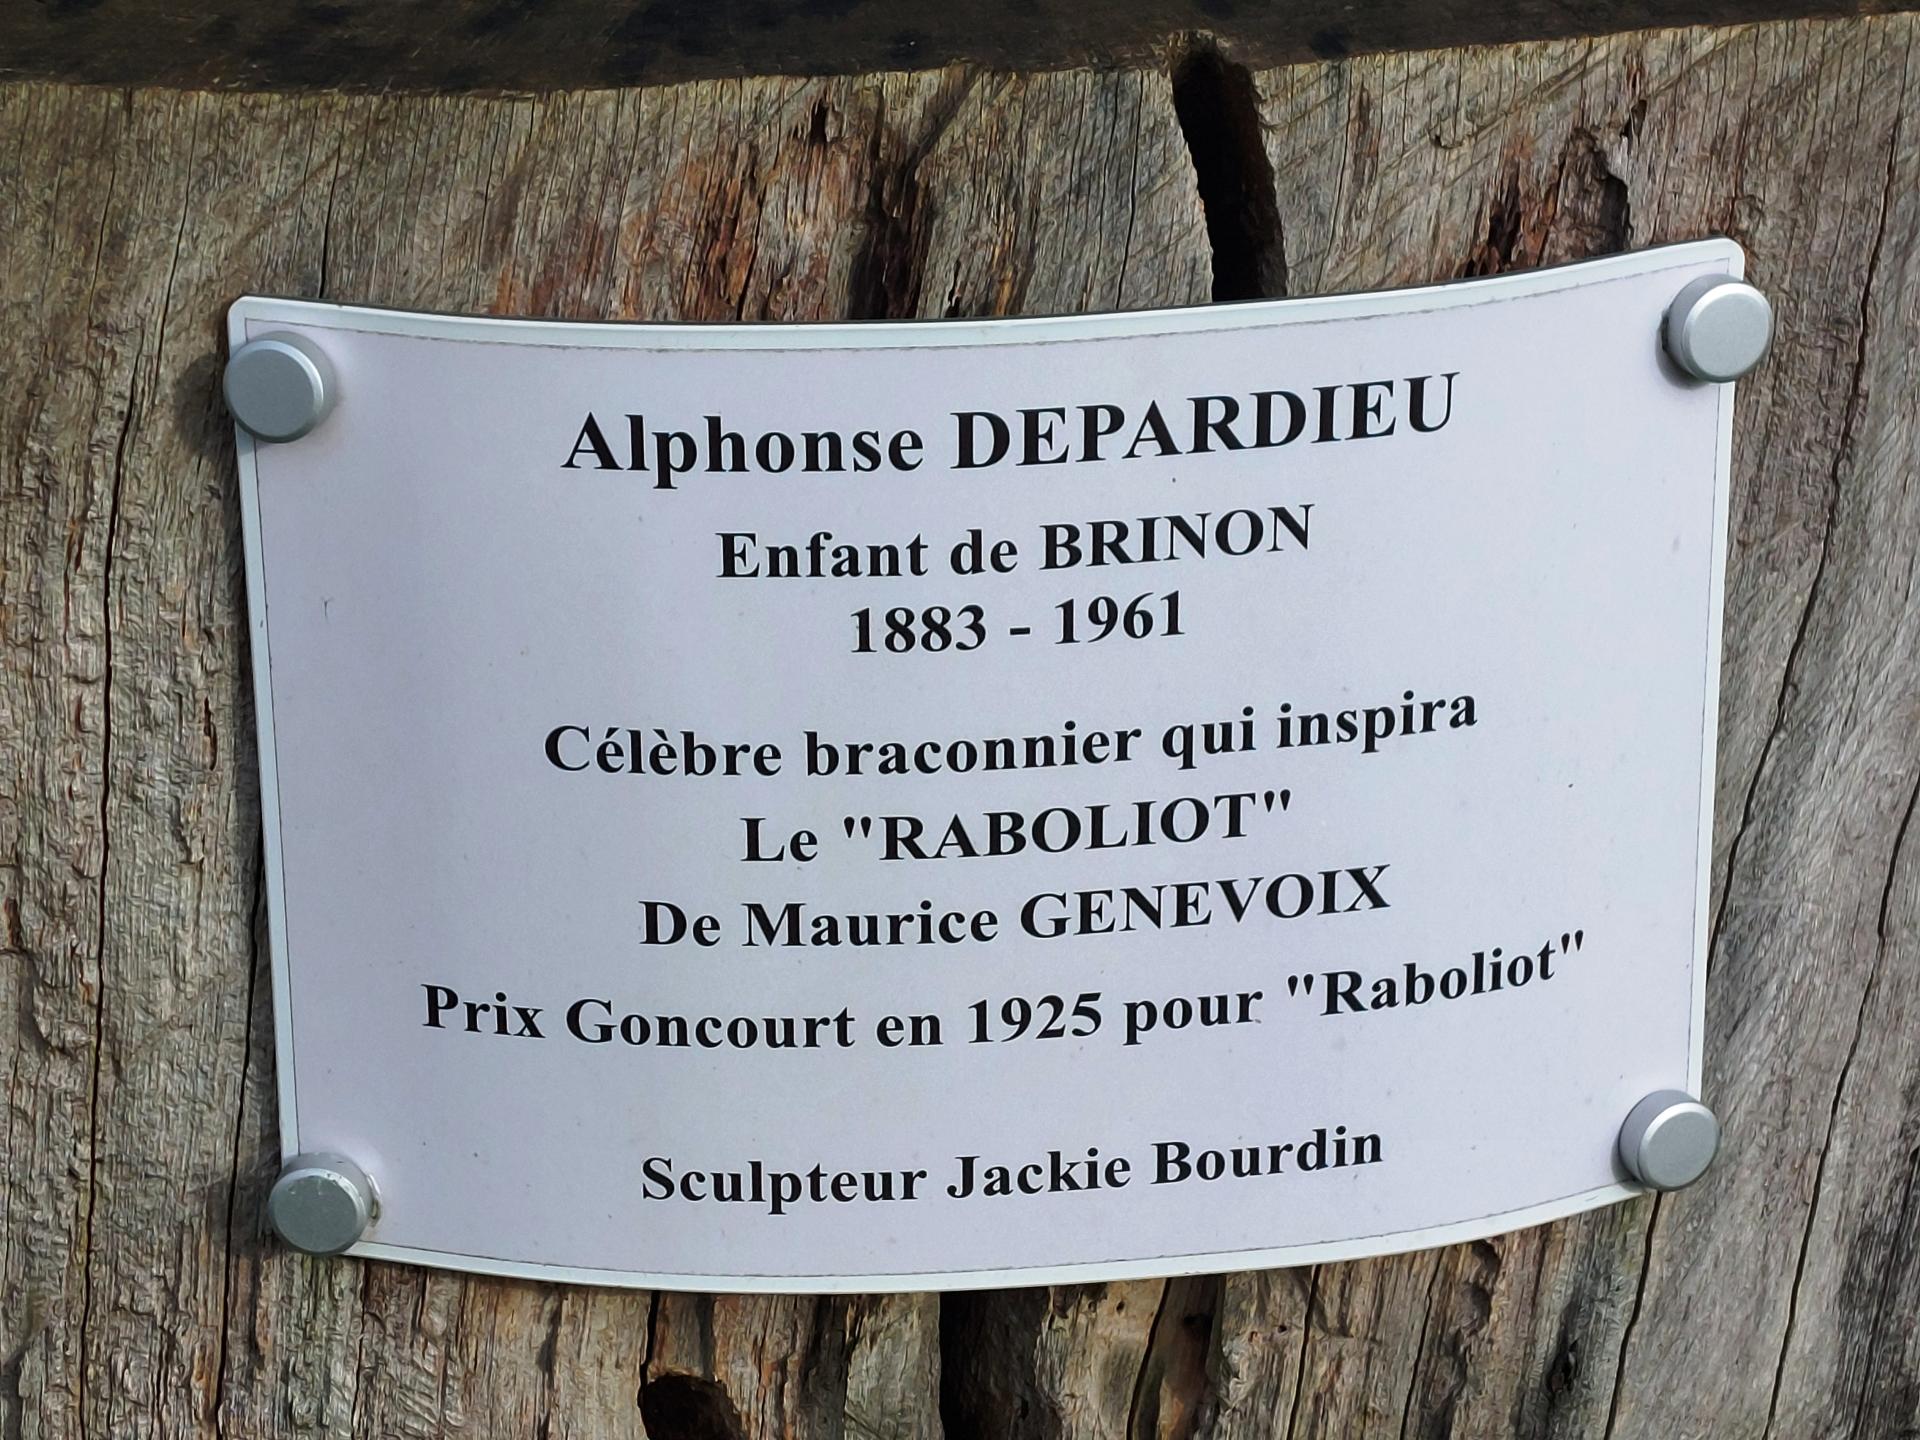 Alphonse DEPARDIEU
Enfant de BRINON
1883 - 1961
Célèbre braconnier qui inspira
Le "RABOLIOT"
De Maurice GENEVOIX
Prix Goncourt en 1925 pour "Raboliot"
Sculpteur Jackie Bourdin